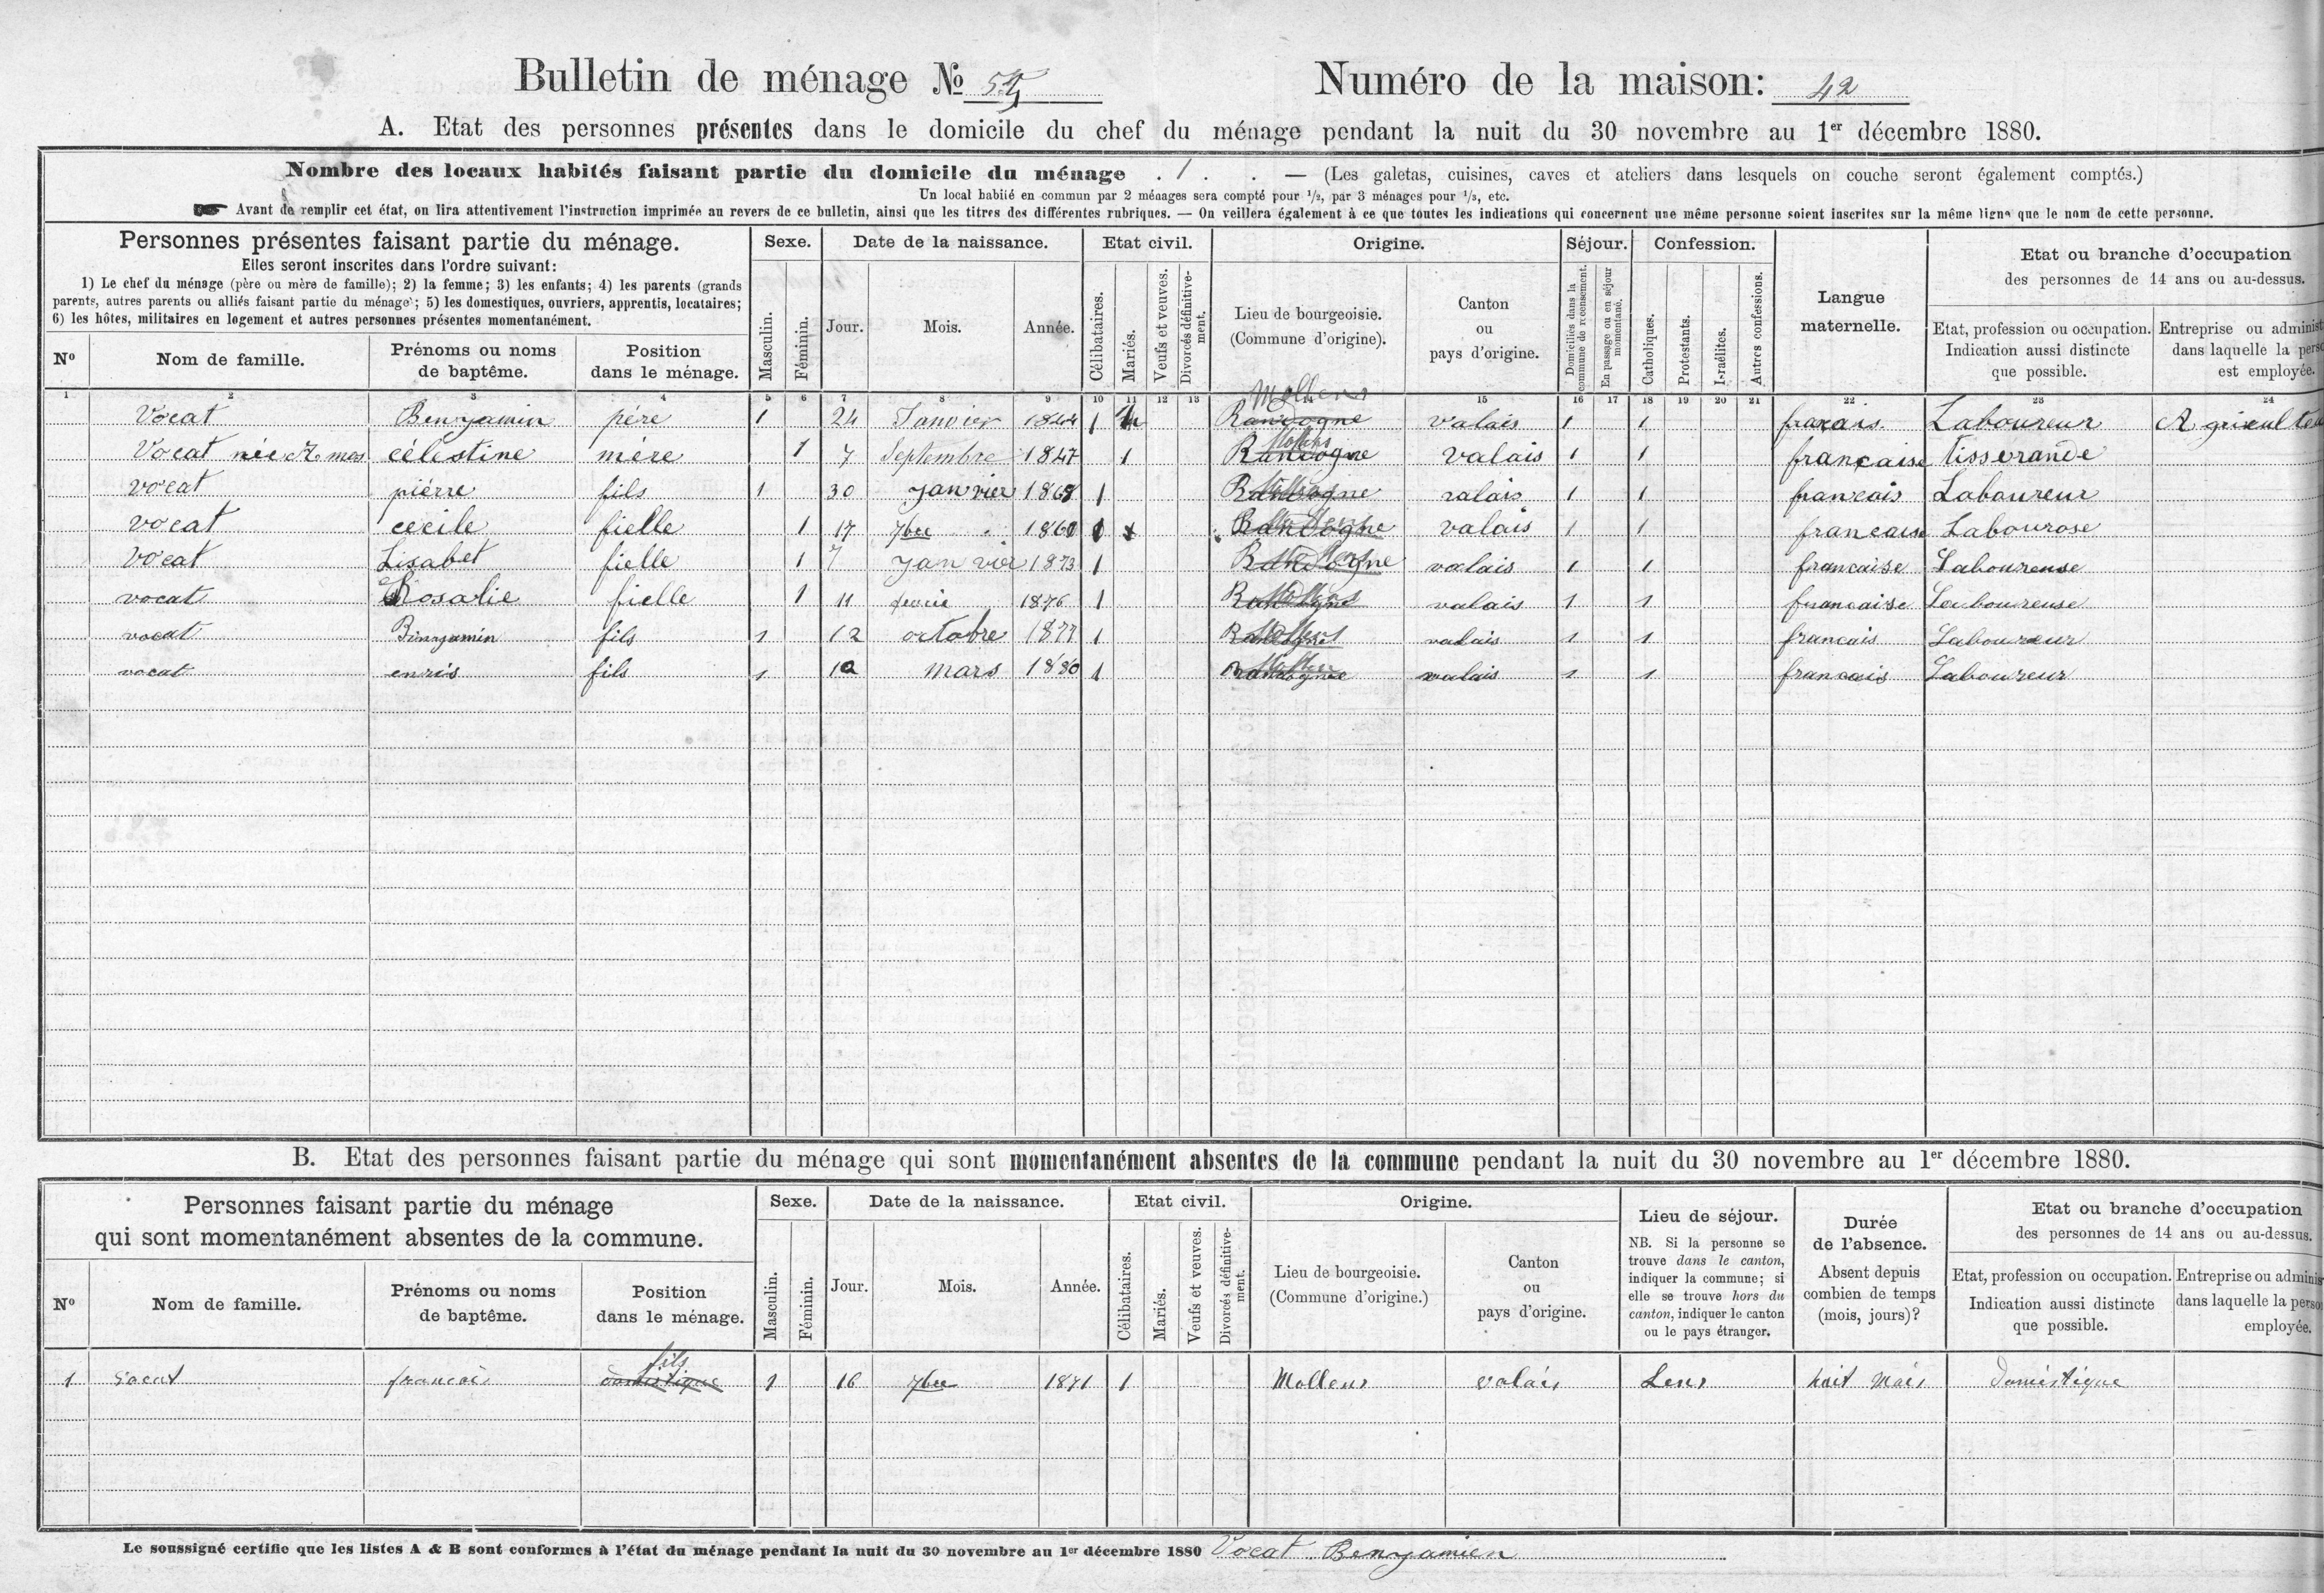 Bulletin de ménage No
Numéro de la maison: 42
A. Etat des personnes présentes dans le domicile du chef du ménage pendant la nuit du 30 novembre au 1er décembre 1880.
Nombre des locaux habités faisant partie du domicile du ménage . 1 . . — (Les galetas, cuisines, caves et ateliers dans lesquels on couche seront également comptés.)
Un local habité en commun par 2 ménages sera compté pour 1/2, par 3 ménages pour 1/3, etc.
☛ Avant de remplir cet état, on lira attentivement l'instruction imprimée au revers de ce bulletin, ainsi que les titres des différentes rubriques. — On veillera également à ce que toutes les indications qui concernent une même personne soient inscrites sur la même ligne que le nom de cette personne.
Personnes présentes faisant partie du ménage.
Elles seront inscrites dans l'ordre suivant:
1) Le chef du ménage (père ou mère de famille); 2) la femme; 3) les enfants; 4) les parents (grands
parents, autres parents ou alliés faisant partie du ménage); 5) les domestiques, ouvriers, apprentis, locataires;
6) les hôtes, militaires en logement et autres personnes présentes momentanément.
No
Nom de famille.
Prénoms ou noms
de baptême.
Position
dans le ménage.
Sexe.
Masculin.
Féminin.
Date de la naissance.
Jour.
Mois.
Année.
Etat civil.
Célibataires.
Mariés.
Veufs et veuves.
Divorcés définitive-
ment.
Origine.
Lieu de bourgeoisie.
(Commune d'origine).
Canton
ou
pays d'origine.
Séjour.
Domiciliés dans la
commune de recensement.
En passage ou en séjour
momentané.
Confession.
Catholiques.
Protestants.
Israélites.
Autres confessions.
Langue
maternelle.
Etat ou branche d'occupation
des personnes de 14 ans ou au-dessus.
Etat, profession ou occupation.
Indication aussi distincte
que possible.
Entreprise ou administ
dans laquelle la perso
est employée.
1 2 3 4 5 6 7 8 9 10 11 12 13 15 16 17 18 19 20 21 22 23 24
Mollens
Vocat Benyamin père 1 24 Janvier 1844 1 Randogne valais 1 1 français Laboureur Agriculteu
Mollens
Vocat née célestine mère 1 7 Septembre 1847 1 Randogne valais 1 1 française tisserande
vocat piérre fils 1 30 janvier 1868 1 Randogne Mollens valais 1 1 francais Laboureur
vocat cécile fielle 1 17 7bre 1860 Randogne Mollens valais 1 1 francaise Labourose
vocat Lisabet fielle 1 7 janvier 1873 1 Randogne Mollens valais 1 1 francaise Laboureuse
vocat Rosalie fielle 1 11 fevrie 1876 1 Randogne Mollens valais 1 1 francaise Laboureuse
vocat Binnyamin fils 1 12 octobre 1877 1 Randogne Mollens valais 1 1 francais Laboureur
vocat enris fils 1 12 mars 1880 1 Randogne Mollens valais 1 1 francais Laboureur
B. Etat des personnes faisant partie du ménage qui sont momentanément absentes de la commune pendant la nuit du 30 novembre au 1er décembre 1880.
Personnes faisant partie du ménage
qui sont momentanément absentes de la commune.
No
Nom de famille.
Prénoms ou noms
de baptême.
Position
dans le ménage.
Sexe.
Masculin.
Féminin.
Date de la naissance.
Jour.
Mois.
Année.
Etat civil.
Célibataires.
Mariés.
Veufs et veuves.
Divorcés définitive-
ment.
Origine.
Lieu de bourgeoisie.
(Commune d'origine.)
Canton
ou
pays d'origine.
Lieu de séjour.
NB. Si la personne se
trouve dans le canton,
indiquer la commune; si
elle se trouve hors du
canton, indiquer le canton
ou le pays étranger.
Durée
de l'absence.
Absent depuis
combien de temps
(mois, jours)?
Etat ou branche d'occupation
des personnes de 14 ans ou au-dessus.
Etat, profession ou occupation.
Indication aussi distincte
que possible.
Entreprise ou adminis
dans laquelle la person
employée.
fils
1 Vocat francoi domistique 1 16 7bre 1871 1 Mollens valais Lens huit Mois Domistique
Le soussigné certifie que les listes A & B sont conformes à l'état du ménage pendant la nuit du 30 novembre au 1er décembre 1880 Vocat Benyamien